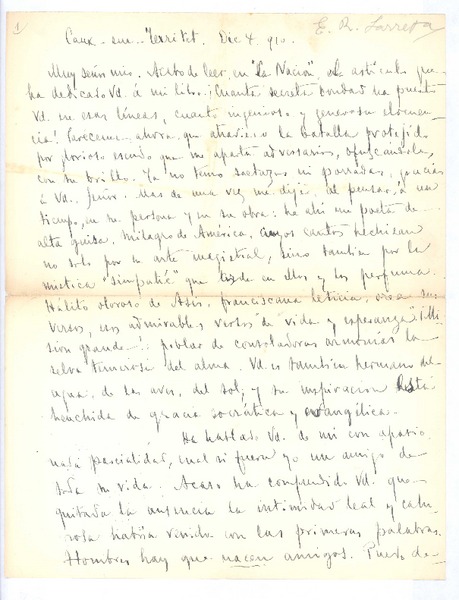 1
E. R. Larreta
Caux-sur-Territet. Dic 4. 910.
Muy señor mío. Acabo de leer, en "La Nación", el artículo que
ha dedicado Vd. á mi libro. ¡Cuanta secreta bondad ha puesto
Vd. en esas líneas, cuanta ingeniosa y generosa elocuen-
cia! Paréceme ahora que atravieso la batalla protegido
por glorioso escudo que me aparta adversarios, ofuscándolos
con su brillo. Ya no temo saetazos ni porradas, gracias
á Vd. Señor. Mas de una vez me dije, al pensar, á un
tiempo, en su persona y en su obra: he ahi un poeta de
alta guisa, milagro de América, cuyos cantos hechizan
no solo por su arte magistral, sino tambien por la
mística "simpatía" que en ellos y los perfuma.
Hálito oloroso de Asís, franciscana leticia, sus
versos, esos admirables versos de vida y esperanza. ¡Mi
sión grande! poblar de consoladoras armonías la
selva tenebrosa del alma. Vd. es tambien hermano del
agua, de las aves, del sol, y su inspiracion está
henchida de gracia socrática y evangélica.
Ha hablado Vd. de mí con apasio
nada parcialidad, cual si fuera yo un amigo de
toda su vida. Acaso ha comprendido Vd. que
quitada la ausencia la intimidad leal y calu-
rosa habría venido con las primeras palabras.
Hombres hay que nacen amigos. Puedo de-